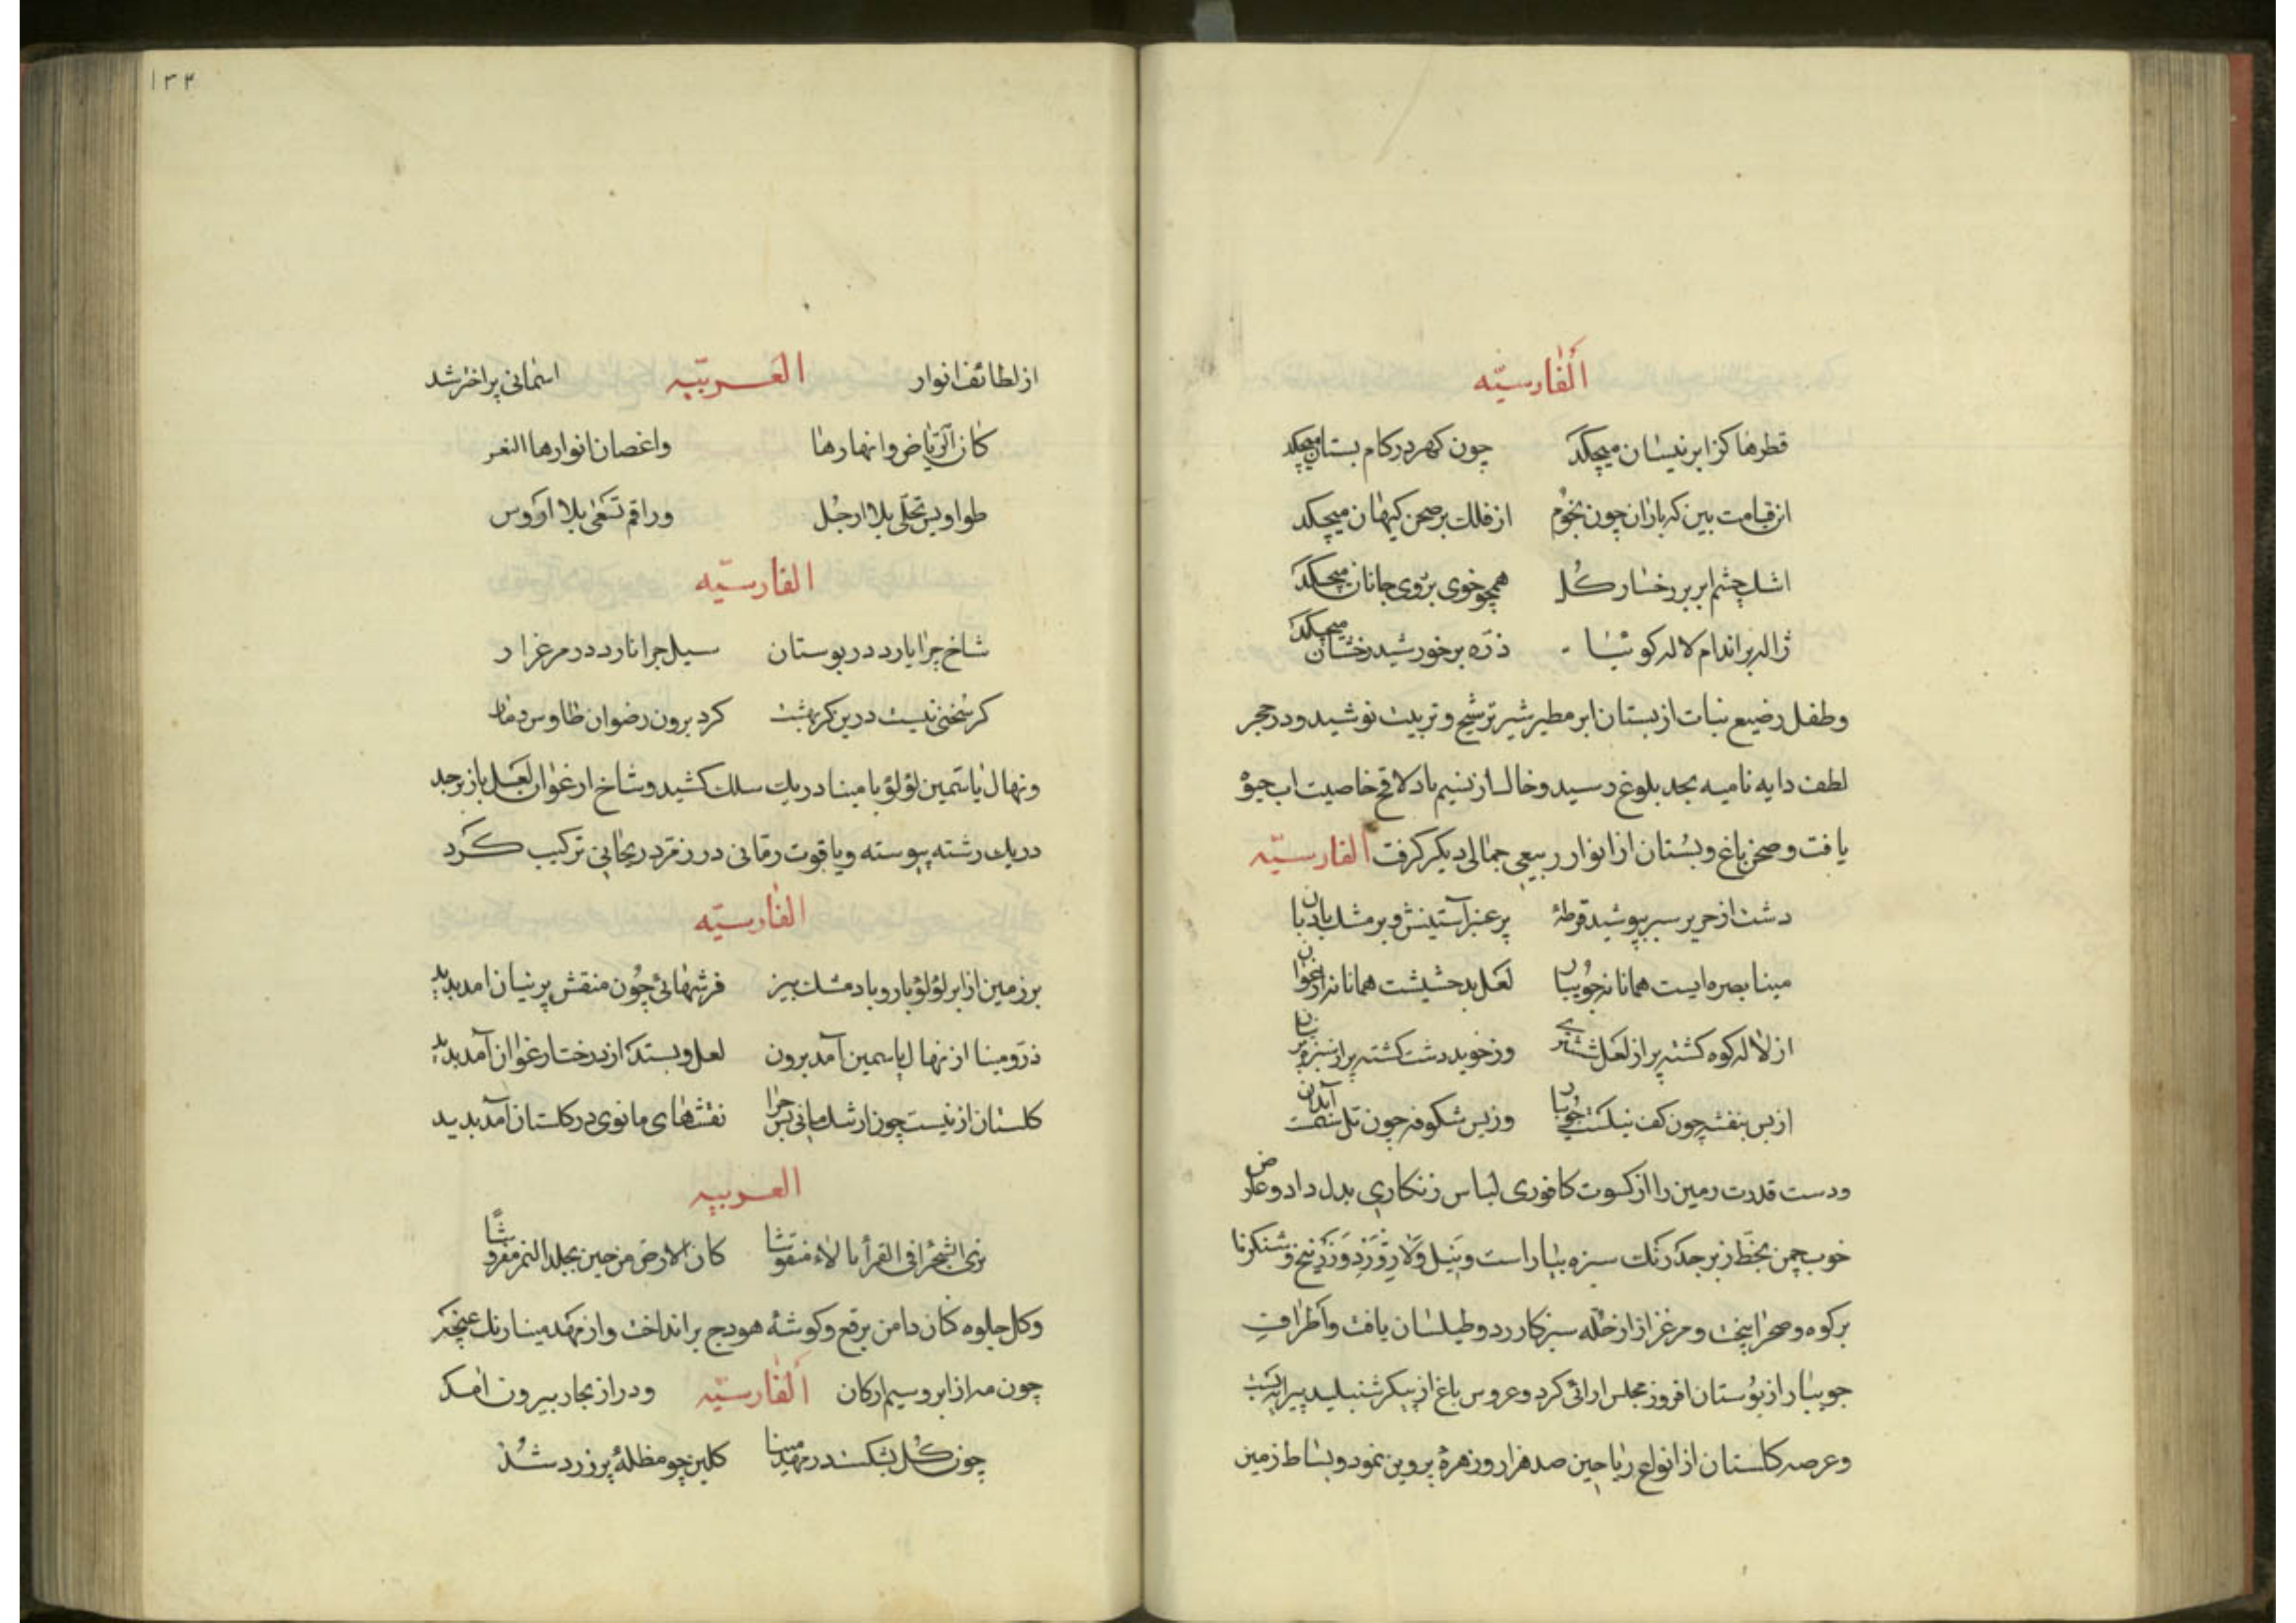 الفارسیّه
قطرها کز ابر نیسان میچکد چون کهر در کام بستان میچکد
از قیامت بین که باران چون نجوم از فلک بر صحن کیهان میچکد
اشک چشم ابر بر رخسار کل همچو خوی بر روی جانان میچکد
ژاله بر اندام لاله کوئیا ذرّه بر خورشید رخشان میچکد
وطفل رضیع نبات از بستان ابر مطیر شیر ترشیح و تربیت نوشید و در حجر
لطف دایه نامیه بحد بلوغ رسید و خاک از نسیم باد لاقح خاصیت اب حیوة
یافت و صحن باغ و بستان از انوار ربیعی جمالی دیکر کرفت الفارسیّه
دشت از حریر سبز بپوشید قرطهٔ پر عنبر آستینش و پر مشک بادبان
مینا بصره ایست همانا نه جویبار لعل بدخشیست همانا نه ارغوان
از لاله کوه کشته پر از لعل ششتری وز خوید دشت کشته پر از سبز پرنیان
از بس بنفشه چون کف نیل کشت جویبار وز بس شکوفه چون تل شدست آبدان
ودست قدرت زمین را از کسوت کافوری لباس زنکاری بدل داد و عارض
خوب چمن بخط زبرجد رنک سبزه بیاراست و بنیل ولازورد وزرنیخ وشنکرف
بر کوه و صحرا بیخت و مرغزار از حله سبز کار ردو طیلسان یافت و اطراف
جویبار از بوستان افروز مجلس ارائی کرد و عروس باغ از پیکر شنبلید پیرایه بست
وعرصه کلستان از انواع ریاحین صد هزار و زهرهٔ پروین نمود و بساط زمین
۱۳۴
از لطائف انوار العربیّه اسمانی پر اختر شد
کان الریاض وانهارها واغصان انوارها
طواویس تجلّی بلا ارجل وراقم تسعی بلا اروس
الفارسیّه
شاخ چرا یارد در بوستان سیل چرا نارد در مرغزار
کر سخنی نیست درین کر بهشت کرد برون رضوان طاوس و مار
ونهال یاسمین لؤلؤ با مینا در یک سلک کشید و شاخ ارغوان لعل با زبرجد
در یک رشته پیوسته و یاقوت رمّانی در زمرّد ریحانی ترکیب کرد
الفارسیّه
بر زمین از ابر لؤلؤ بار و باد مشک بیز فرشهائی چون منقش پرنیان امد بدید
در و مینا از نهال یاسمین آمد برون لعل و بسد از درخت ارغوان آمد بدید
کلستان ار نیست چون ارتنک مانی پس چرا نقشهای مانوی در کلستان آمد بدید
العربیه
تری الشجراء فی القمرا بالالاء منقوشا کان الارض من حین بجلد النمر مفروشا
وکل جلوه کنان دامن برقع و کوشهٔ هودج بر انداخت و از مهد مینا رنک غنچه
چون مه از ابر و سیم از کان الفارسیّه و در از بحار بیرون امد
چون کل بشکفت در مهد مینا کلبن چو مظلهٔ پر زر شد